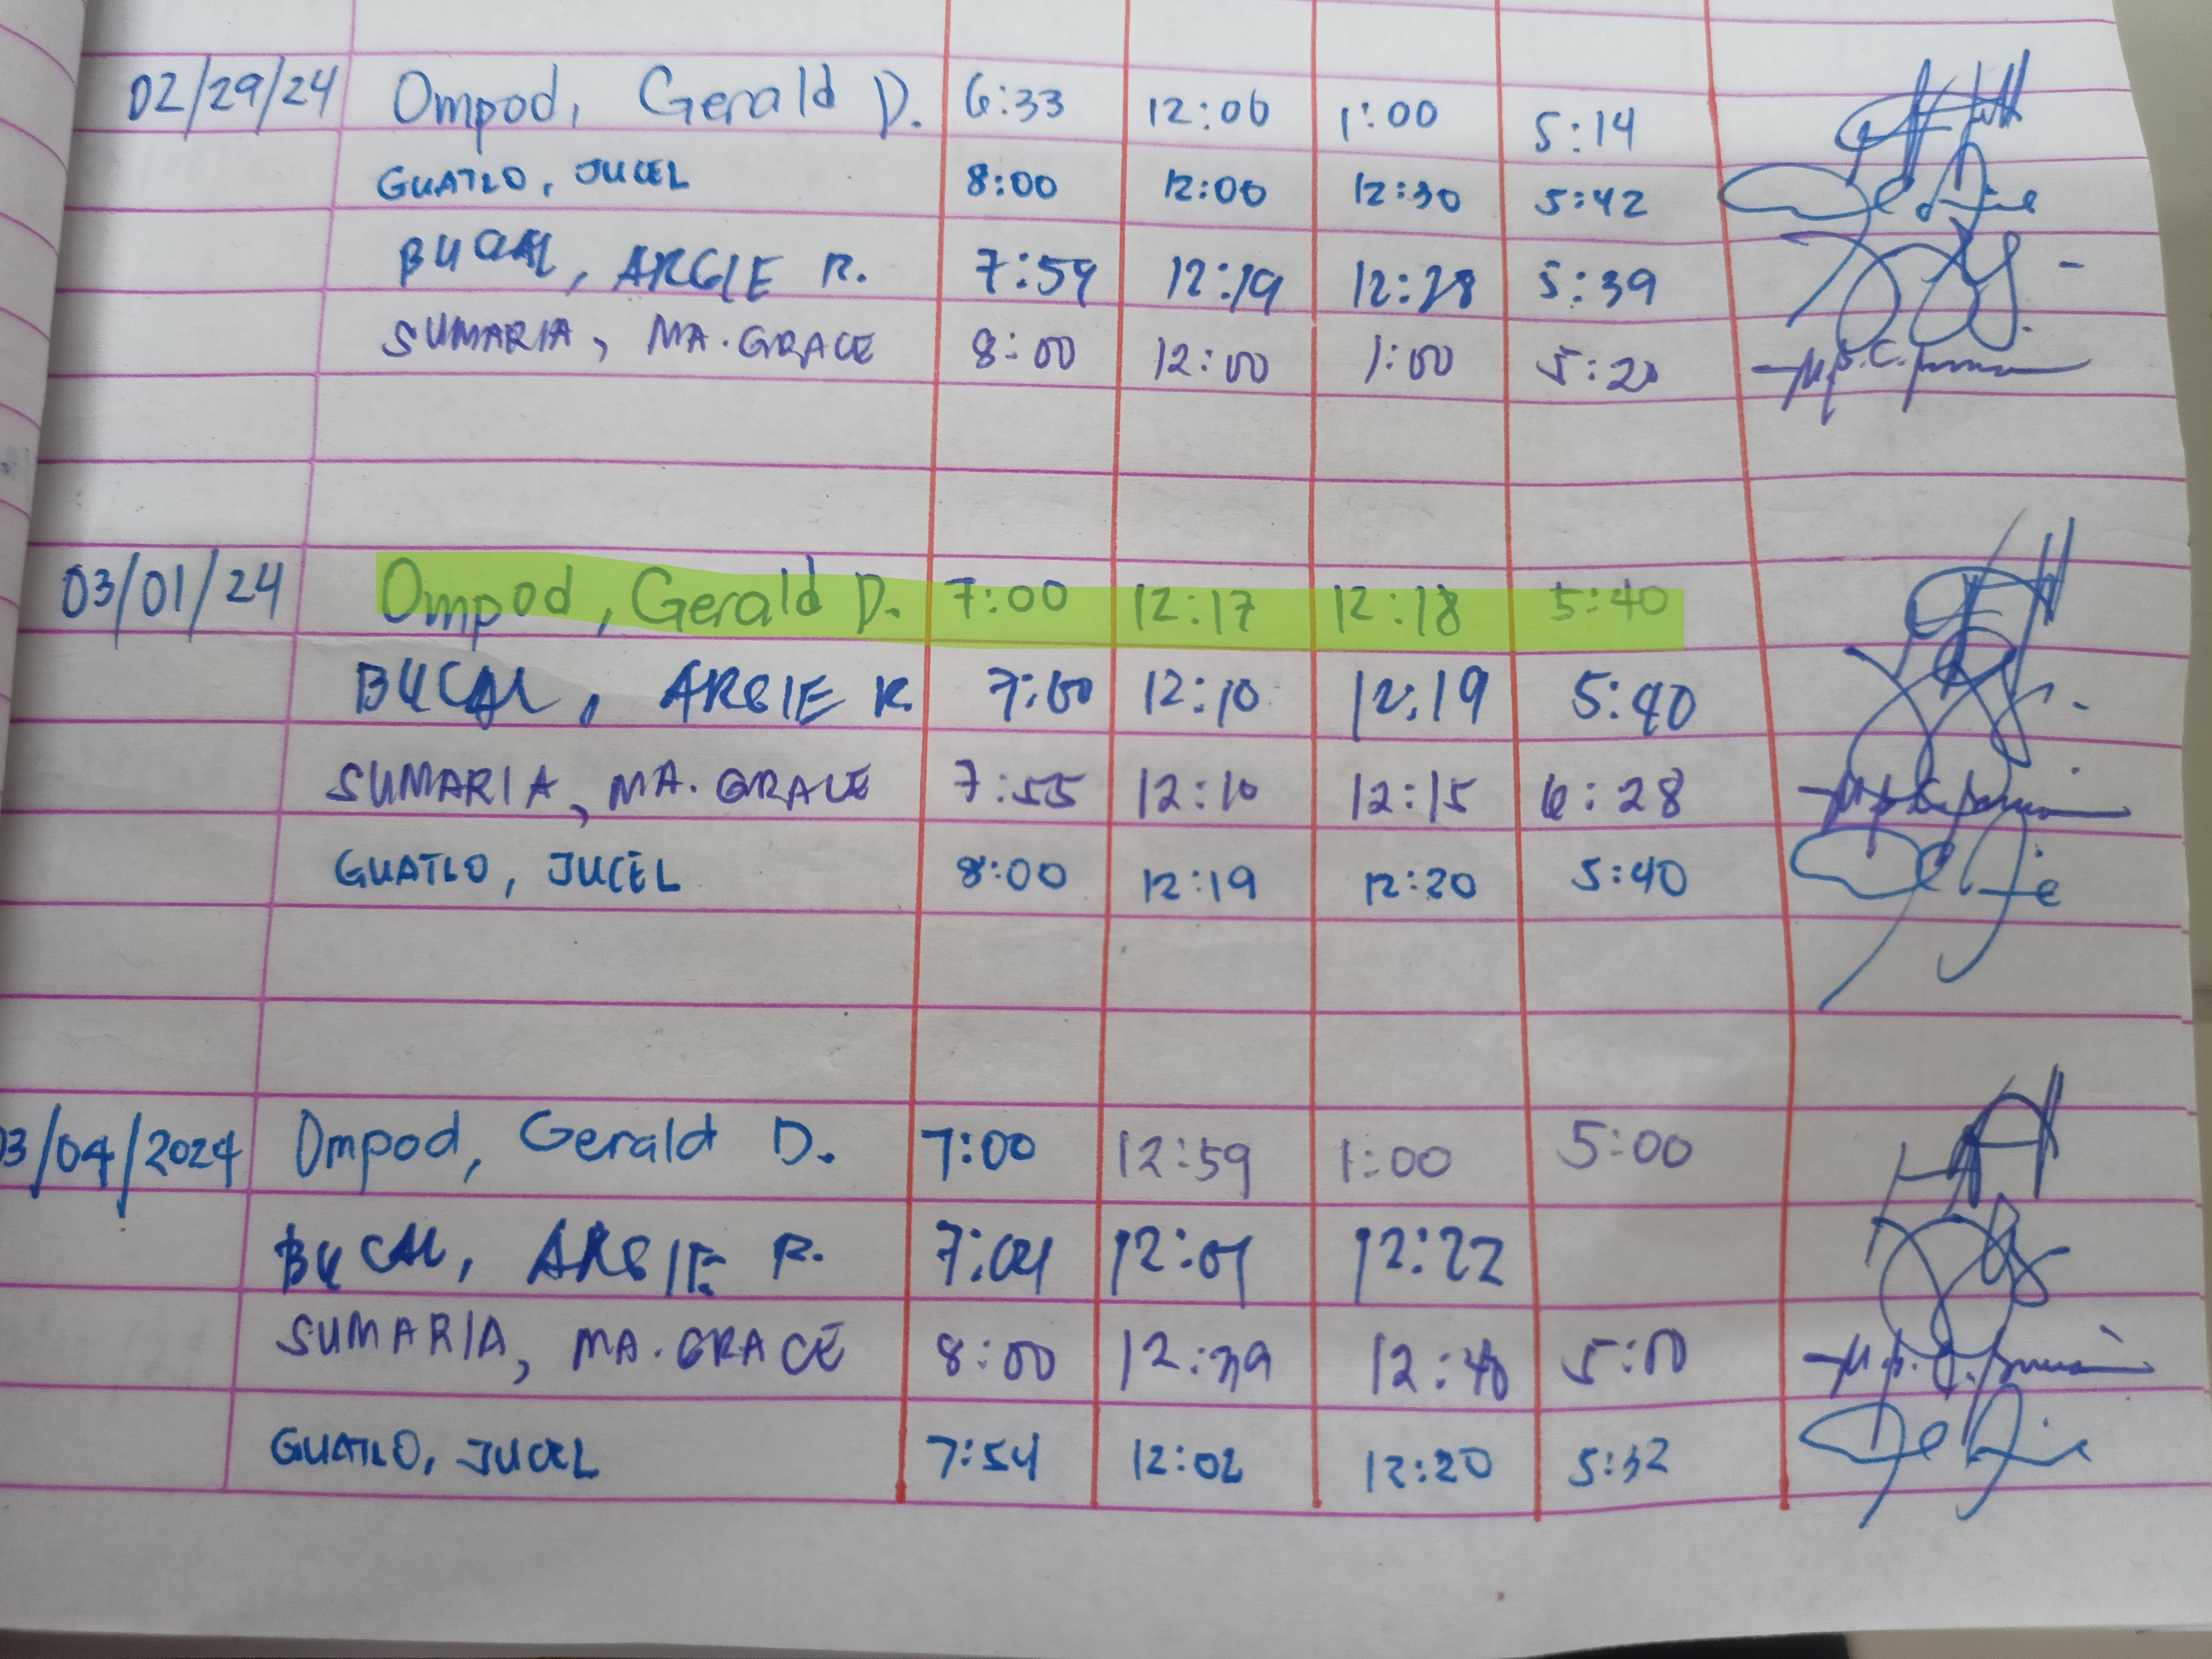 02/29/24 Ompod, Gerald D. 6:33 12:00 1:00 5:14
GUATLO, JUCEL 8:00 12:00 12:30 5:42
BUCAL, ARGIE R. 7:59 12:19 12:28 5:39
SUMARIA, MA. GRACE 8:00 12:00 1:00 5:20
03/01/24 Ompod, Gerald D. 7:00 12:17 12:18 5:40
BUCAL, ARGIE R. 7:00 12:10 12:19 5:40
SUMARIA, MA. GRACE 7:55 12:10 12:15 6:28
GUATLO, JUCEL 8:00 12:19 12:20 5:40
3/04/2024 Ompod, Gerald D. 7:00 12:59 1:00 5:00
BUCAL, ARGIE R. 12:22
SUMARIA, MA. GRACE 8:00 12:39 12:40 5:00
GUATLO, JUCEL 7:54 12:02 12:20 5:32